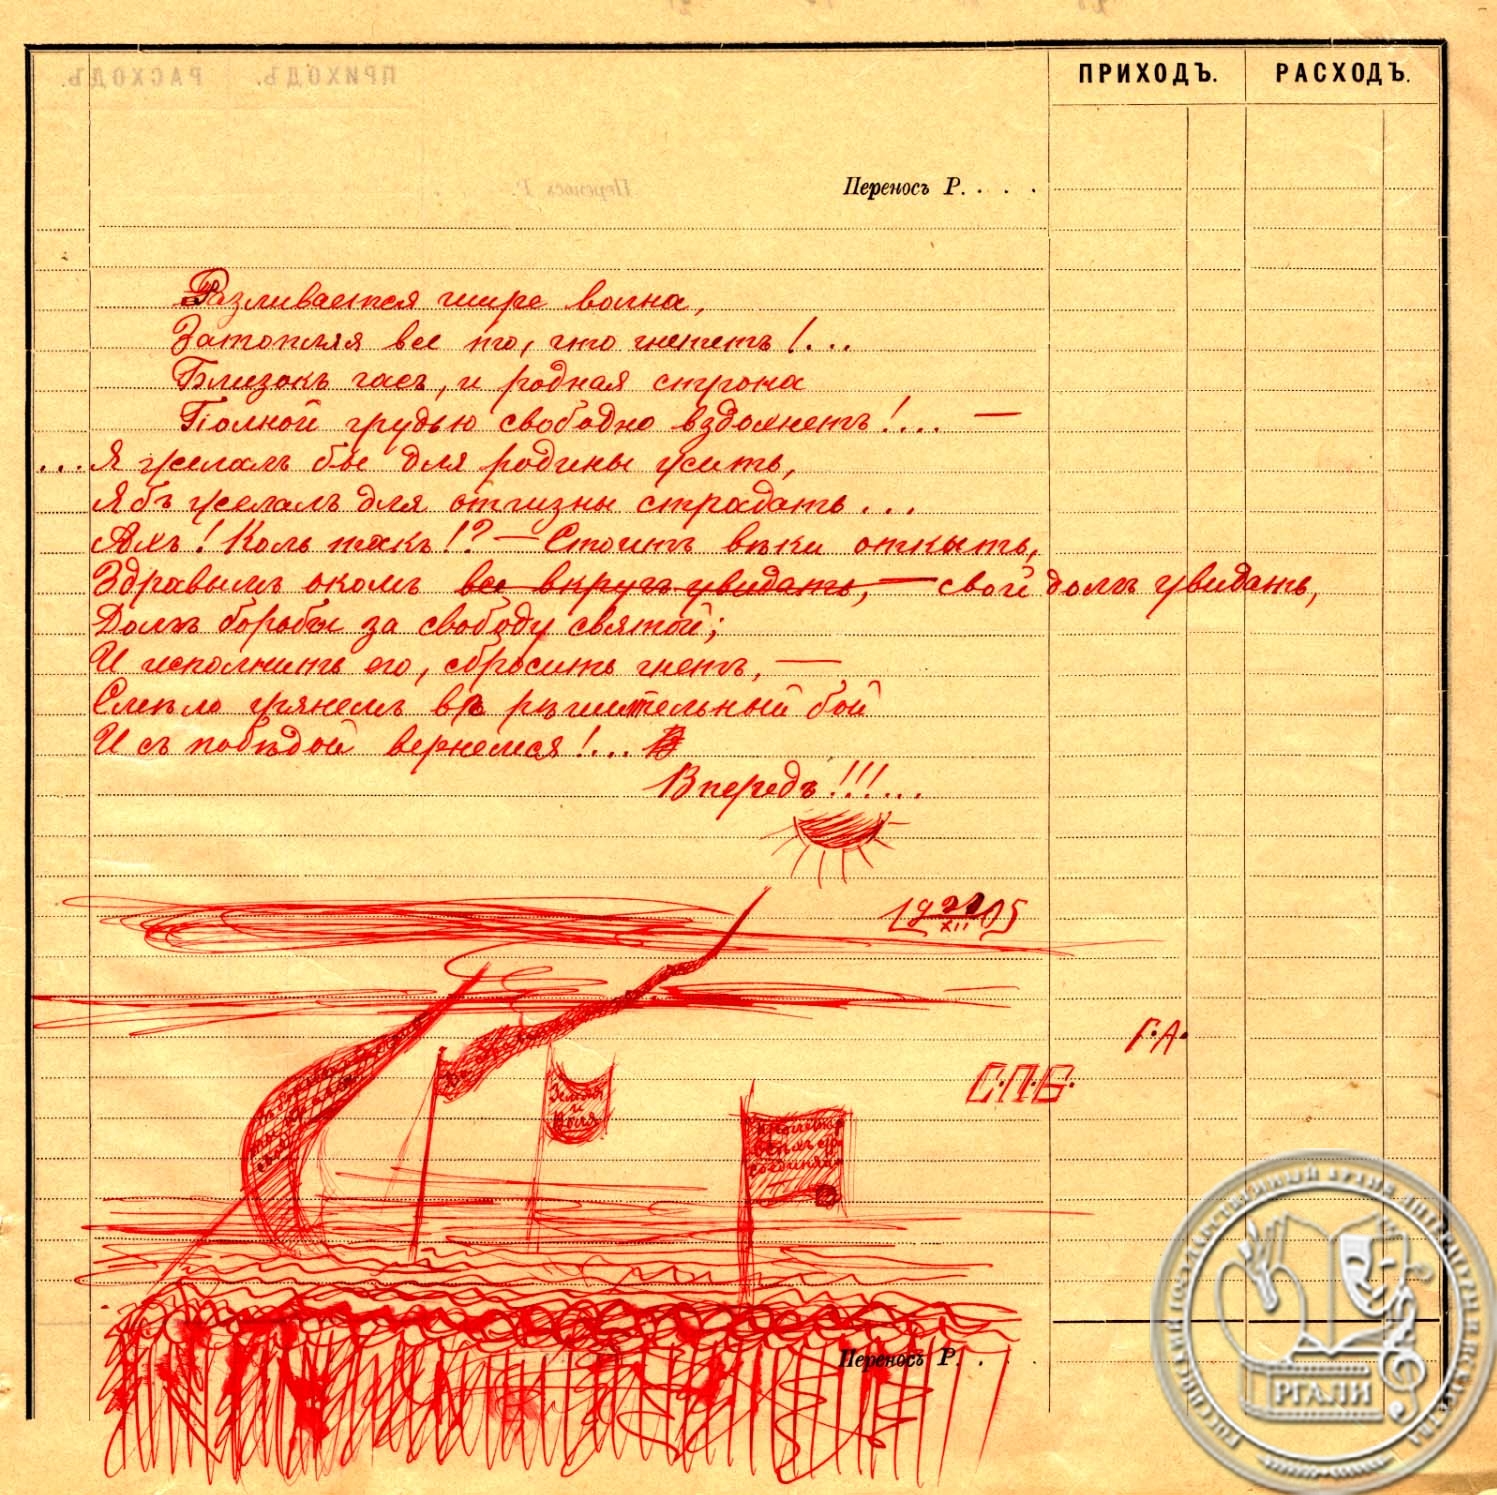 ПРИХОДЪ. РАСХОДЪ.
Переносъ Р. . . .
Разливается шире волна,
Затопляя все то, что гнететъ!...
Близокъ часъ, и родная страна
Полной грудью свободно вздохнетъ!... —
...Я желалъ бы для родины жить,
Я бъ желалъ для отчизны страдать...
Ахъ! Коль такъ!? — Стоитъ вѣки открыть,
Здравымъ окомъ все вкругъ увидать, — свой долгъ увидать,
Долгъ борьбы за свободу святой;
И исполнить его, сбросить гнетъ, —
Смѣло грянемъ въ рѣшительный бой
И съ побѣдой вернемся!...
Впередъ!!!...
19 XII 05
Г.А.
С.П.Б.
Земля
и
Воля
Пролетаріи
всѣхъ стр.
соединяй
Переносъ Р. . . .
РОССИЙСКИЙ ГОСУДАРСТВЕННЫЙ АРХИВ ЛИТЕРАТУРЫ И ИСКУССТВА
РГАЛИ